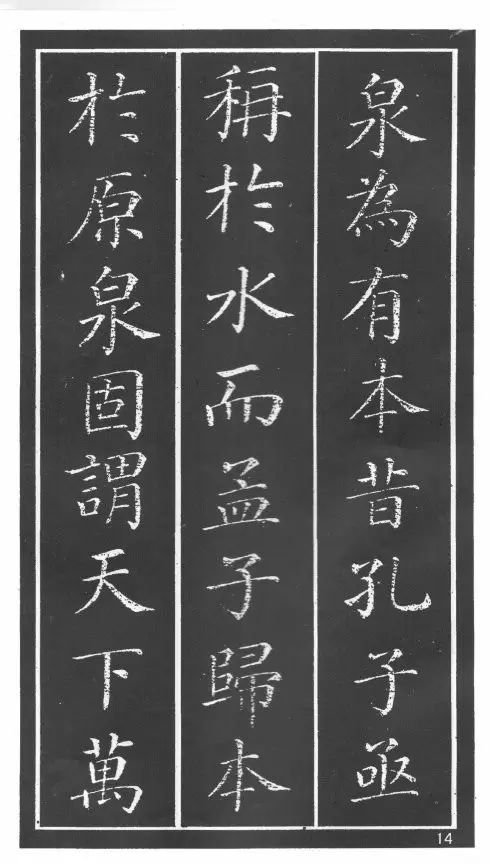 泉為有本昔孔子亟
稱於水而孟子歸本
於原泉固謂天下萬
14